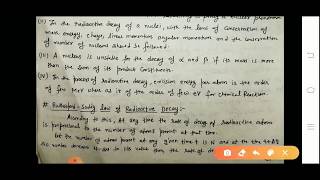 (II) In the Radioactive decay of a nuclei, with the laws of conservation
mass energy, charge, linear momentum angular momentum and the conservation
of number of nucleons should be followed.
(III) A nucleus is unstable for the decay of α and β if its mass is more
than the sum of its product constituents.
(IV) In the process of Radioactive decay, emission energy per atom is the order
of few MeV when as it of the order of few eV for chemical Reaction.
# Rutherford - Soddy law of Radioactive Decay:-
According to this, At any time the rate of decay of Radioactive atoms
is proportional to the number of atoms present at that time.
Let the number of atoms present at any given time t is N and at the